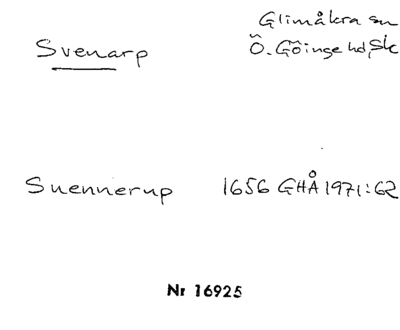 Svenarp
Glimåkra sn
Ö. Göinge hd, Sk
Suennerup 1656 GHÅ 1971:62
Nr 16925